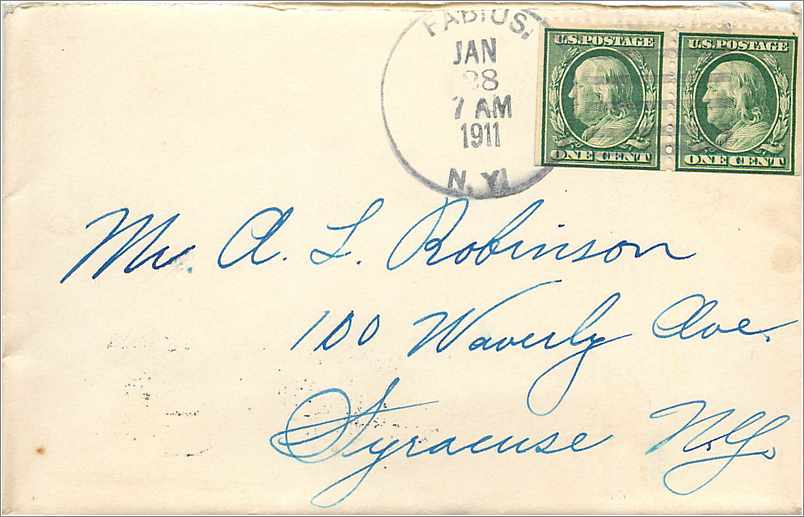 FABIUS,
JAN
28
7 AM
1911
N.Y.
U.S. POSTAGE
ONE CENT
U.S. POSTAGE
ONE CENT
Mr. A. L. Robinson
100 Waverly Ave.
Syracuse N.Y.